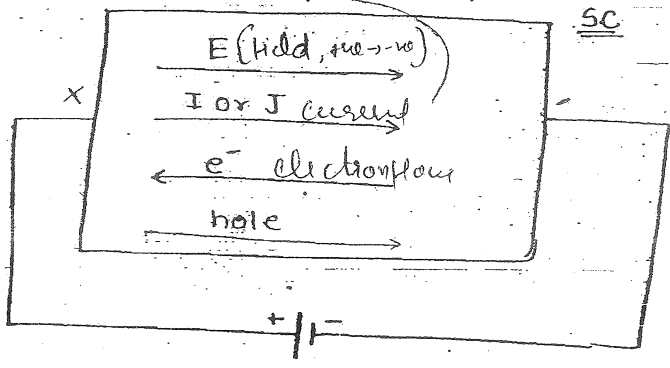 SC
E (field, +ve → -ve)
X
I or J current
e⁻ electron flow
hole
+ -